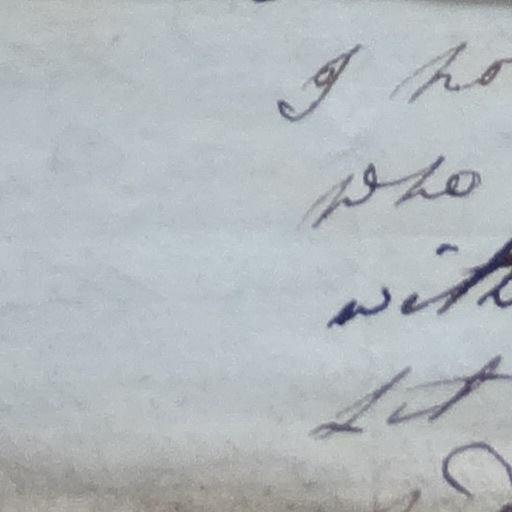 I ho
who
with
Let